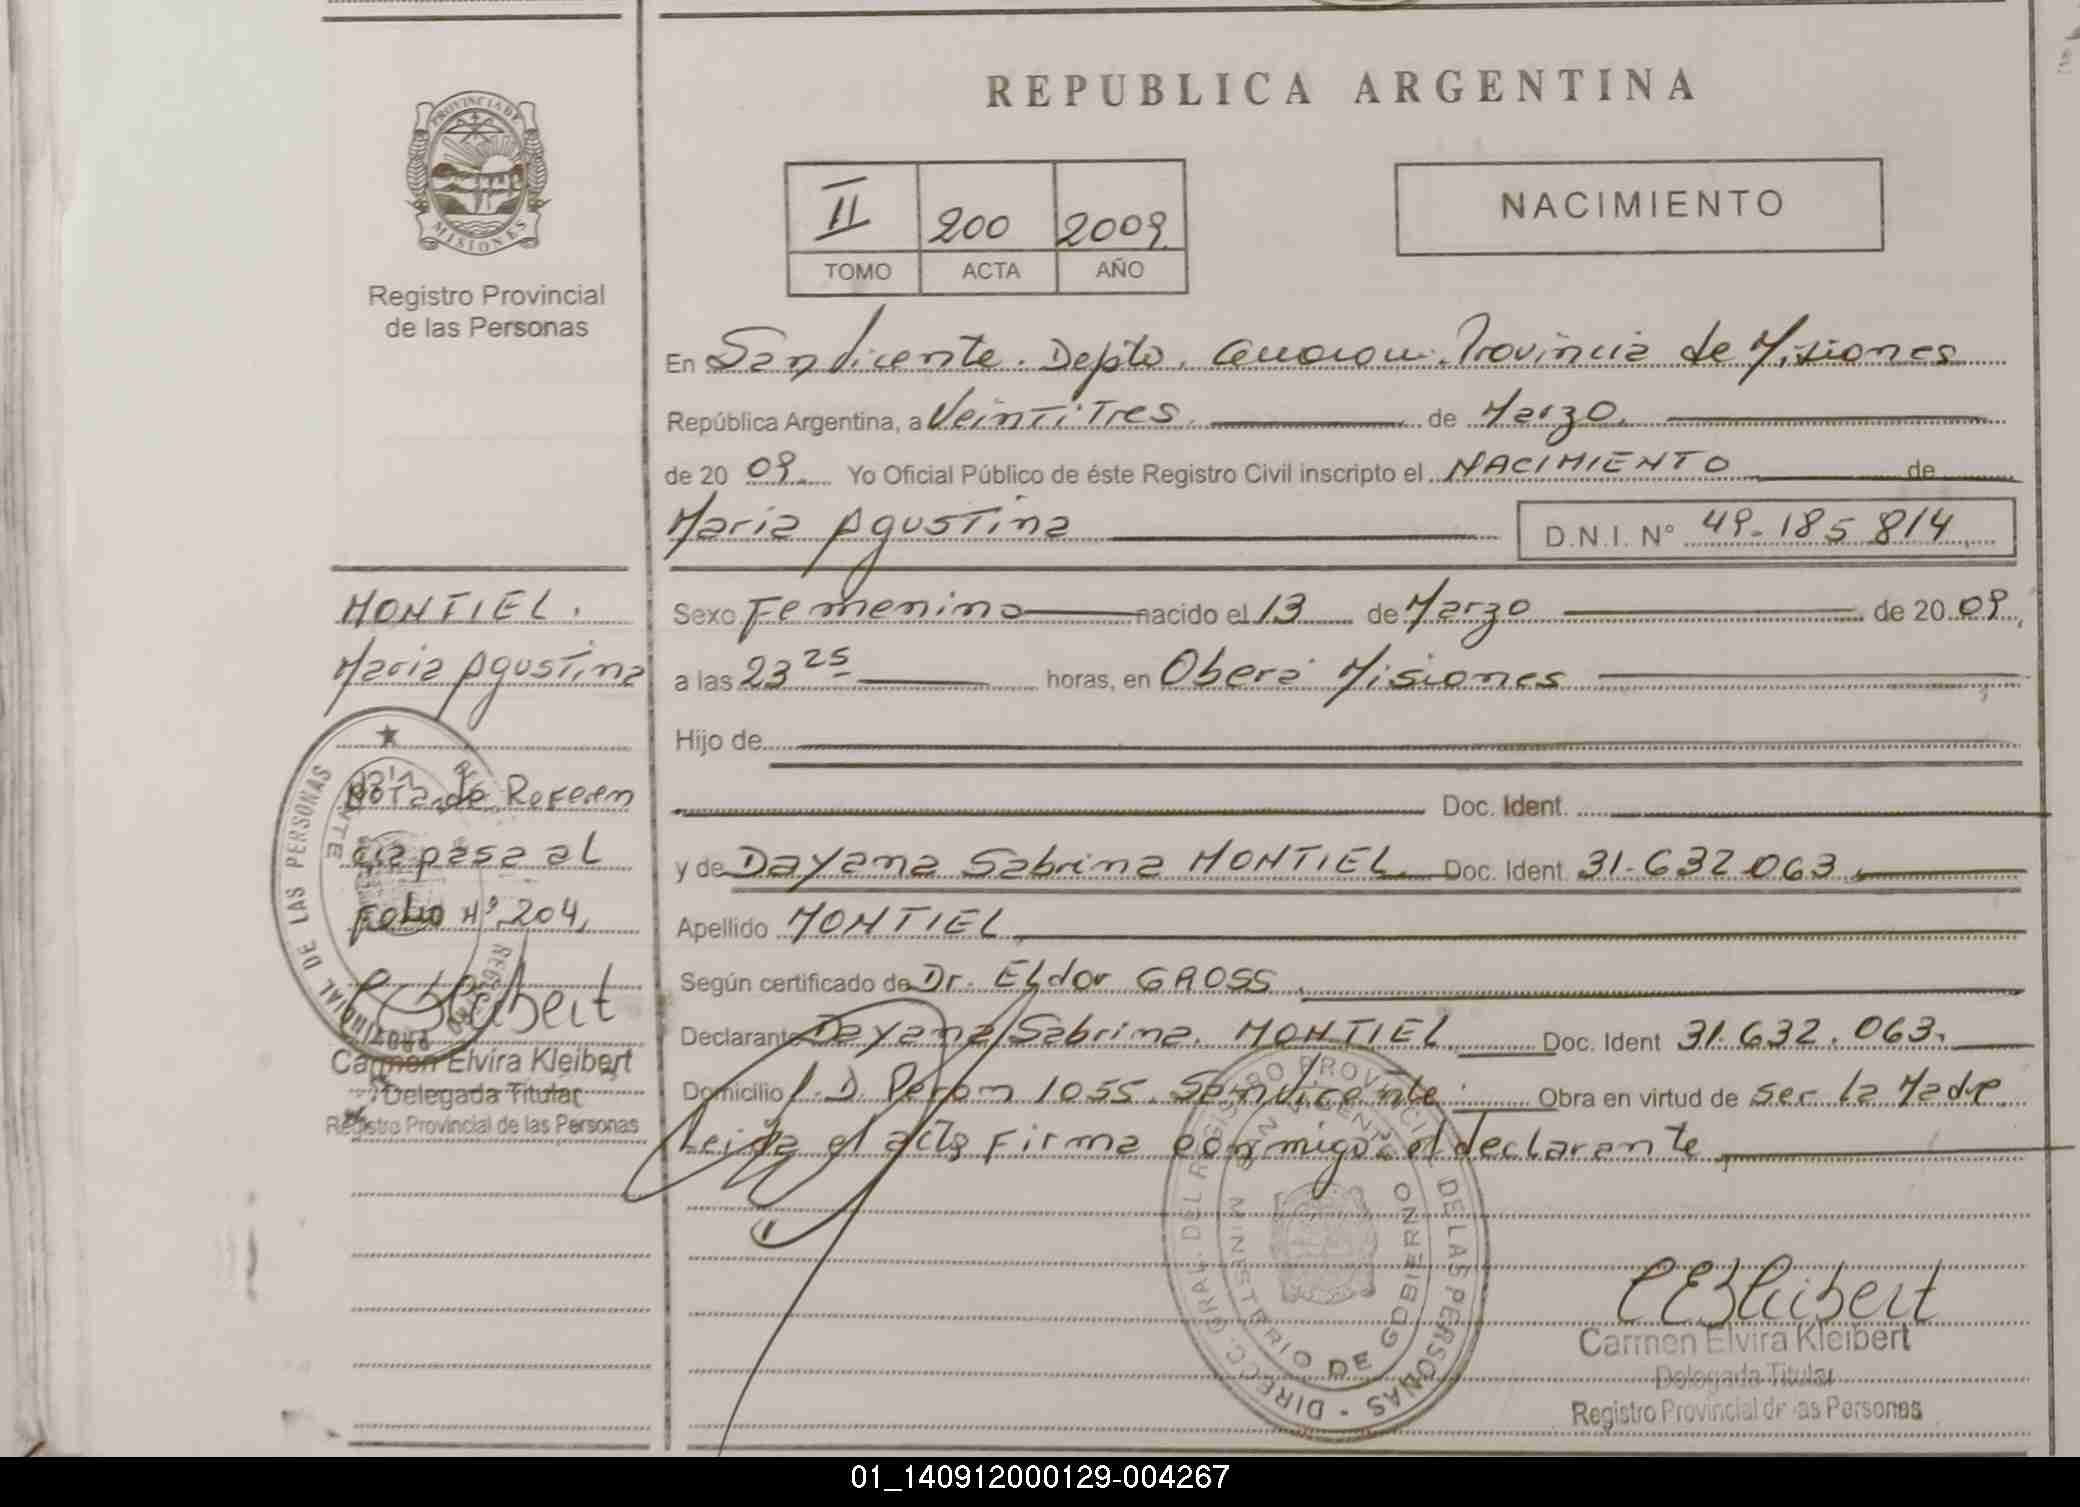 REPUBLICA ARGENTINA
PROVINCIA DE
MISIONES
Registro Provincial
de las Personas
II 200 2009
TOMO ACTA AÑO
NACIMIENTO
En San Vicente. Depto. Provincia de Misiones
República Argentina, a Veintitres de Marzo.
de 20 09. Yo Oficial Público de éste Registro Civil inscripto el NACIMIENTO de
Maria Agustina D.N.I. N° 49-185 814
MONTIEL.
Maria Agustina
Sexo Femenino nacido el 13 de Marzo de 20 09
a las 23 25 horas, en Oberá Misiones
Hijo de
Doc. Ident.
y de Dayana Sabrina MONTIEL Doc. Ident. 31.632 063.
Apellido MONTIEL
Según certificado de Dr. Eldor GROSS
Declarante Dayana Sabrina. MONTIEL Doc. Ident 31.632.063.
Domicilio J. D. Peron 1055. San Vicente. Obra en virtud de ser la Madre.
Leida el acta Firma conmigo el declarante
Nota de Referen
cia pasa al
Folio N° 204,
Kleibert
Carmen Elvira Kleibert
Delegada Titular
Registro Provincial de las Personas
DIRECC. GRAL. DEL REGISTRO PROVINCIAL DE LAS PERSONAS
MINISTERIO DE GOBIERNO
CEKleibert
Carmen Elvira Kleibert
Delegada Titular
Registro Provincial de las Personas
01_140912000129-004267